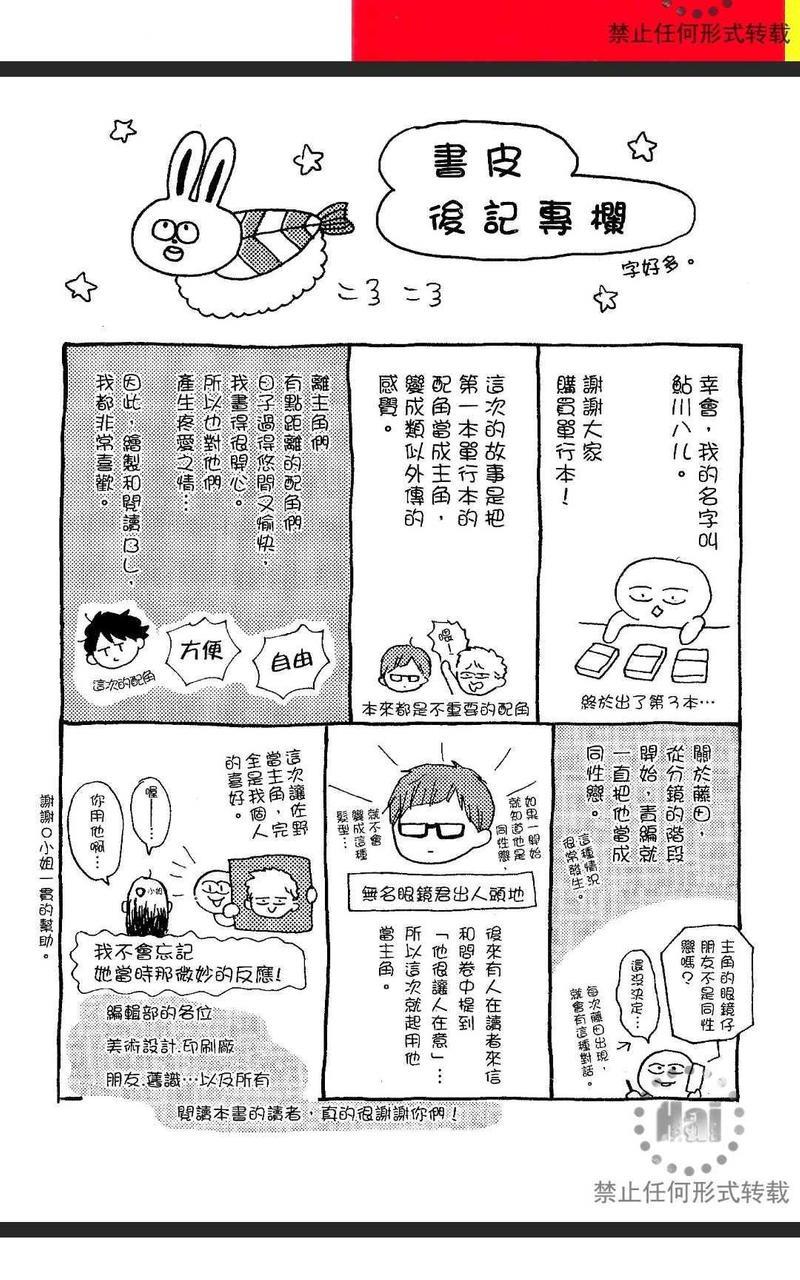 禁止任何形式转载
書皮
後記專欄
字好多。
ニヨ ニヨ
幸會，我的名字叫
鮎川ハル。
謝謝大家
購買單行本！
終於出了第3本⋯
這次的故事是把
第一本單行本的
配角當成主角，
變成類似外傳的
感覺。
喂—
本來都是不重要的配角
離主角們
有點距離的配角們
日子過得悠閒又愉快，
我畫得很開心。
所以也對他們
產生疼愛之情⋯
因此，繪製和閱讀BL，
我都非常喜歡。
自由
方便
這次的配角
關於藤田，
從分鏡的階段
開始，責編就
一直把他當成
同性戀。
這種情況
很常發生。
主角的眼鏡仔
朋友不是同性
戀嗎？
還沒決定⋯
每次藤田出現，
就會有這種對話。
如果一開始
就知道他是
同性戀，
就不會
變成這種
髮型⋯
無名眼鏡君出人頭地
後來有人在讀者來信
和問卷中提到
「他很讓人在意」⋯
所以這次就起用他
當主角。
這次讓佐野
當主角，完
全是我個人
的喜好。
喔——
你用他啊⋯
O小姐
我不會忘記
她當時那微妙的反應！
謝謝O小姐一貫的幫助。
編輯部的各位
美術設計.印刷廠
朋友.舊識⋯以及所有
閱讀本書的讀者，真的很謝謝你們！
Hai
禁止任何形式转载